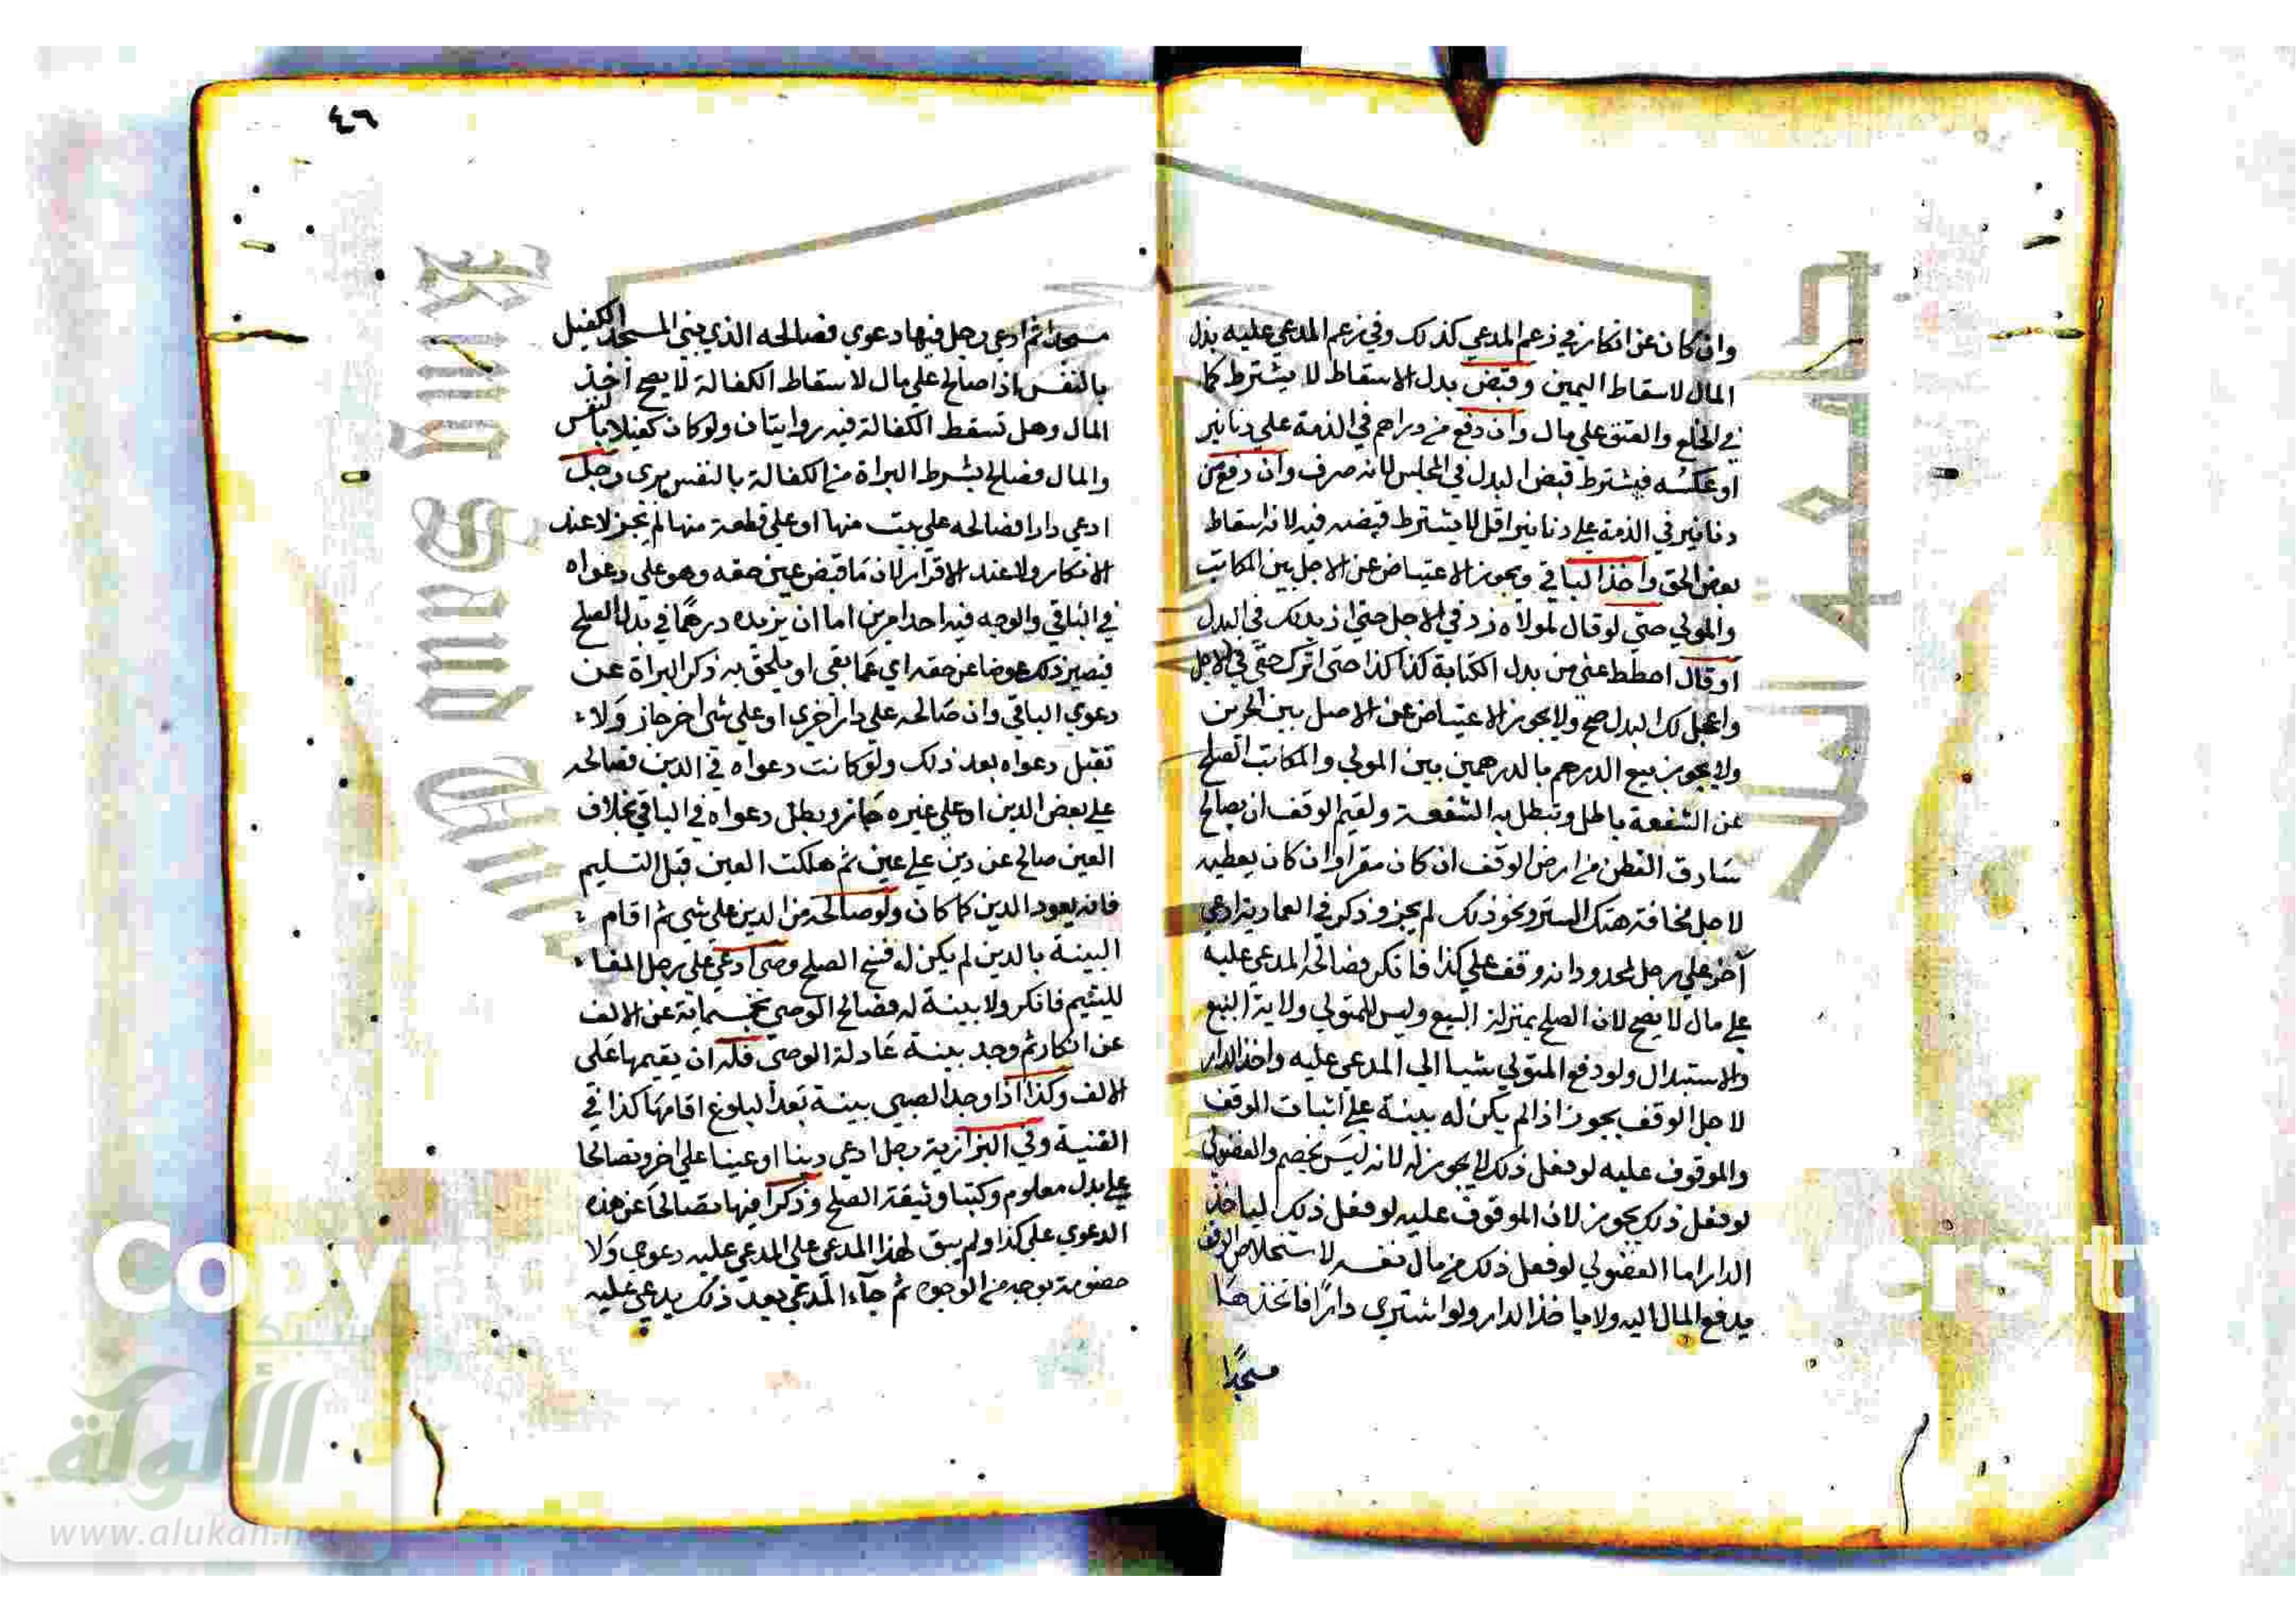 وان كان عن انكار ففي زعم المدعي كذلك وفي زعم المدعي عليه بذل
المال لاسقاط اليمين وقبض بدل الاسقاط لا يشترط كما
في الخلع والعتق علي مال وان دفع من دراهم في الذمة علي دنانير
او عكسه فيشترط قبض البدل في المجلس لانه صرف وان دفع من
دنانير في الذمة علي دنانير اقل لا يشترط قبضه فيه لانه اسقاط
بعض الحق واخذ الباقي ويجوز الاعتياض عن الاجل بين المكاتب
والمولي حتي لو قال لمولاه زد في الاجل حتي ازيدك في البدل
او قال احطط عني من بدل الكتابة كذا كذا حتي اترك حقي في الاجل
واعجل لك البدل صح ولا يجوز الاعتياض عن الاصل بين الحرين
ولا يجوز بيع الدرهم بالدرهمين بين المولي والمكاتب الصلح
عن الشفعة باطل وتبطل به الشفعة ولقيم الوقف ان يصالح
سارق القطن من ارض الوقف ان كان مقرا وان كان يعطيه
لاجل مخافة هتك الستر ونحو ذلك لم يجز وذكر في العمادية ادعي
آخر علي رجل محدودا انه وقف علي كذا فانكر فصالحه المدعي عليه
علي مال لا يصح لان الصلح بمنزلة البيع وليس للمتولي ولاية البيع
والاستبدال ولو دفع المتولي شيا الي المدعي عليه واخذ الدار
لاجل الوقف يجوز اذا لم يكن له بينة علي اثبات الوقف
والموقوف عليه لو فعل ذلك لا يجوز له لانه ليس بخصم والفضولي
لو فعل ذلك يجوز لان الموقوف عليه لو فعل ذلك لياخذ
الدار اما الفضولي لو فعل ذلك من مال نفسه لاستخلاص الوقف
يدفع المال اليه ولا ياخذ الدار ولو اشتري دارًا فاتخذها
مسجدًا
٤٦
مسجدا ثم ادعي رجل فيها دعوي فصالحه الذي بني المسجد الكفيل
بالنفس اذا صالح علي مال لاسقاط الكفالة لا يصح أخذ
المال وهل تسقط الكفالة فيه روايتان ولو كان كفيلا بالنفس
والمال فصالح بشرط البراة من الكفالة بالنفس بري رجل
ادعي دارا فصالحه علي بيت منها او علي قطعة منها لم يجز لا عند
الانكار ولا عند الاقرار لان ما قبض عين حقه وهو علي دعواه
في الباقي والوجه فيه احد امرين اما ان يزيده درهمًا في بدل الصلح
فيصير ذلك عوضا عن حقه اي عما بقي او يلحق به ذكر البراة عن
دعوي الباقي وان صالحه علي دار اخري او علي شي اخر جاز ولا
تقبل دعواه بعد ذلك ولو كانت دعواه في الدين فصالحه
علي بعض الدين او علي غيره جاز وبطل دعواه في الباقي بخلاف
العين صالح عن دين علي عين ثم هلكت العين قبل التسليم
فانه يعود الدين كما كان ولو صالحه من الدين علي شي ثم اقام
البينة بالدين لم يكن له فسخ الصلح وصي ادعي علي رجل الفا
لليتيم فانكر ولا بينة له فصالح الوصي بخمسماية عن الالف
عن انكار ثم وجد بينة عادلة الوصي فله ان يقيمها علي
الالف وكذا اذا وجد الصبي بينة بعد البلوغ اقامها كذا في
القنية وفي البزازية رجل ادعي دينا او عينا علي اخر وتصالحا
علي بدل معلوم وكتبا وثيقة الصلح وذكرا فيها تصالحا عن هذه
الدعوي علي كذا ولم يبق لهذا المدعي علي المدعي عليه دعوي ولا
خصومة بوجه من الوجوه ثم جآء المدعي بعد ذلك يدعي عليه
شبكة
الألوكة
www.alukah.net